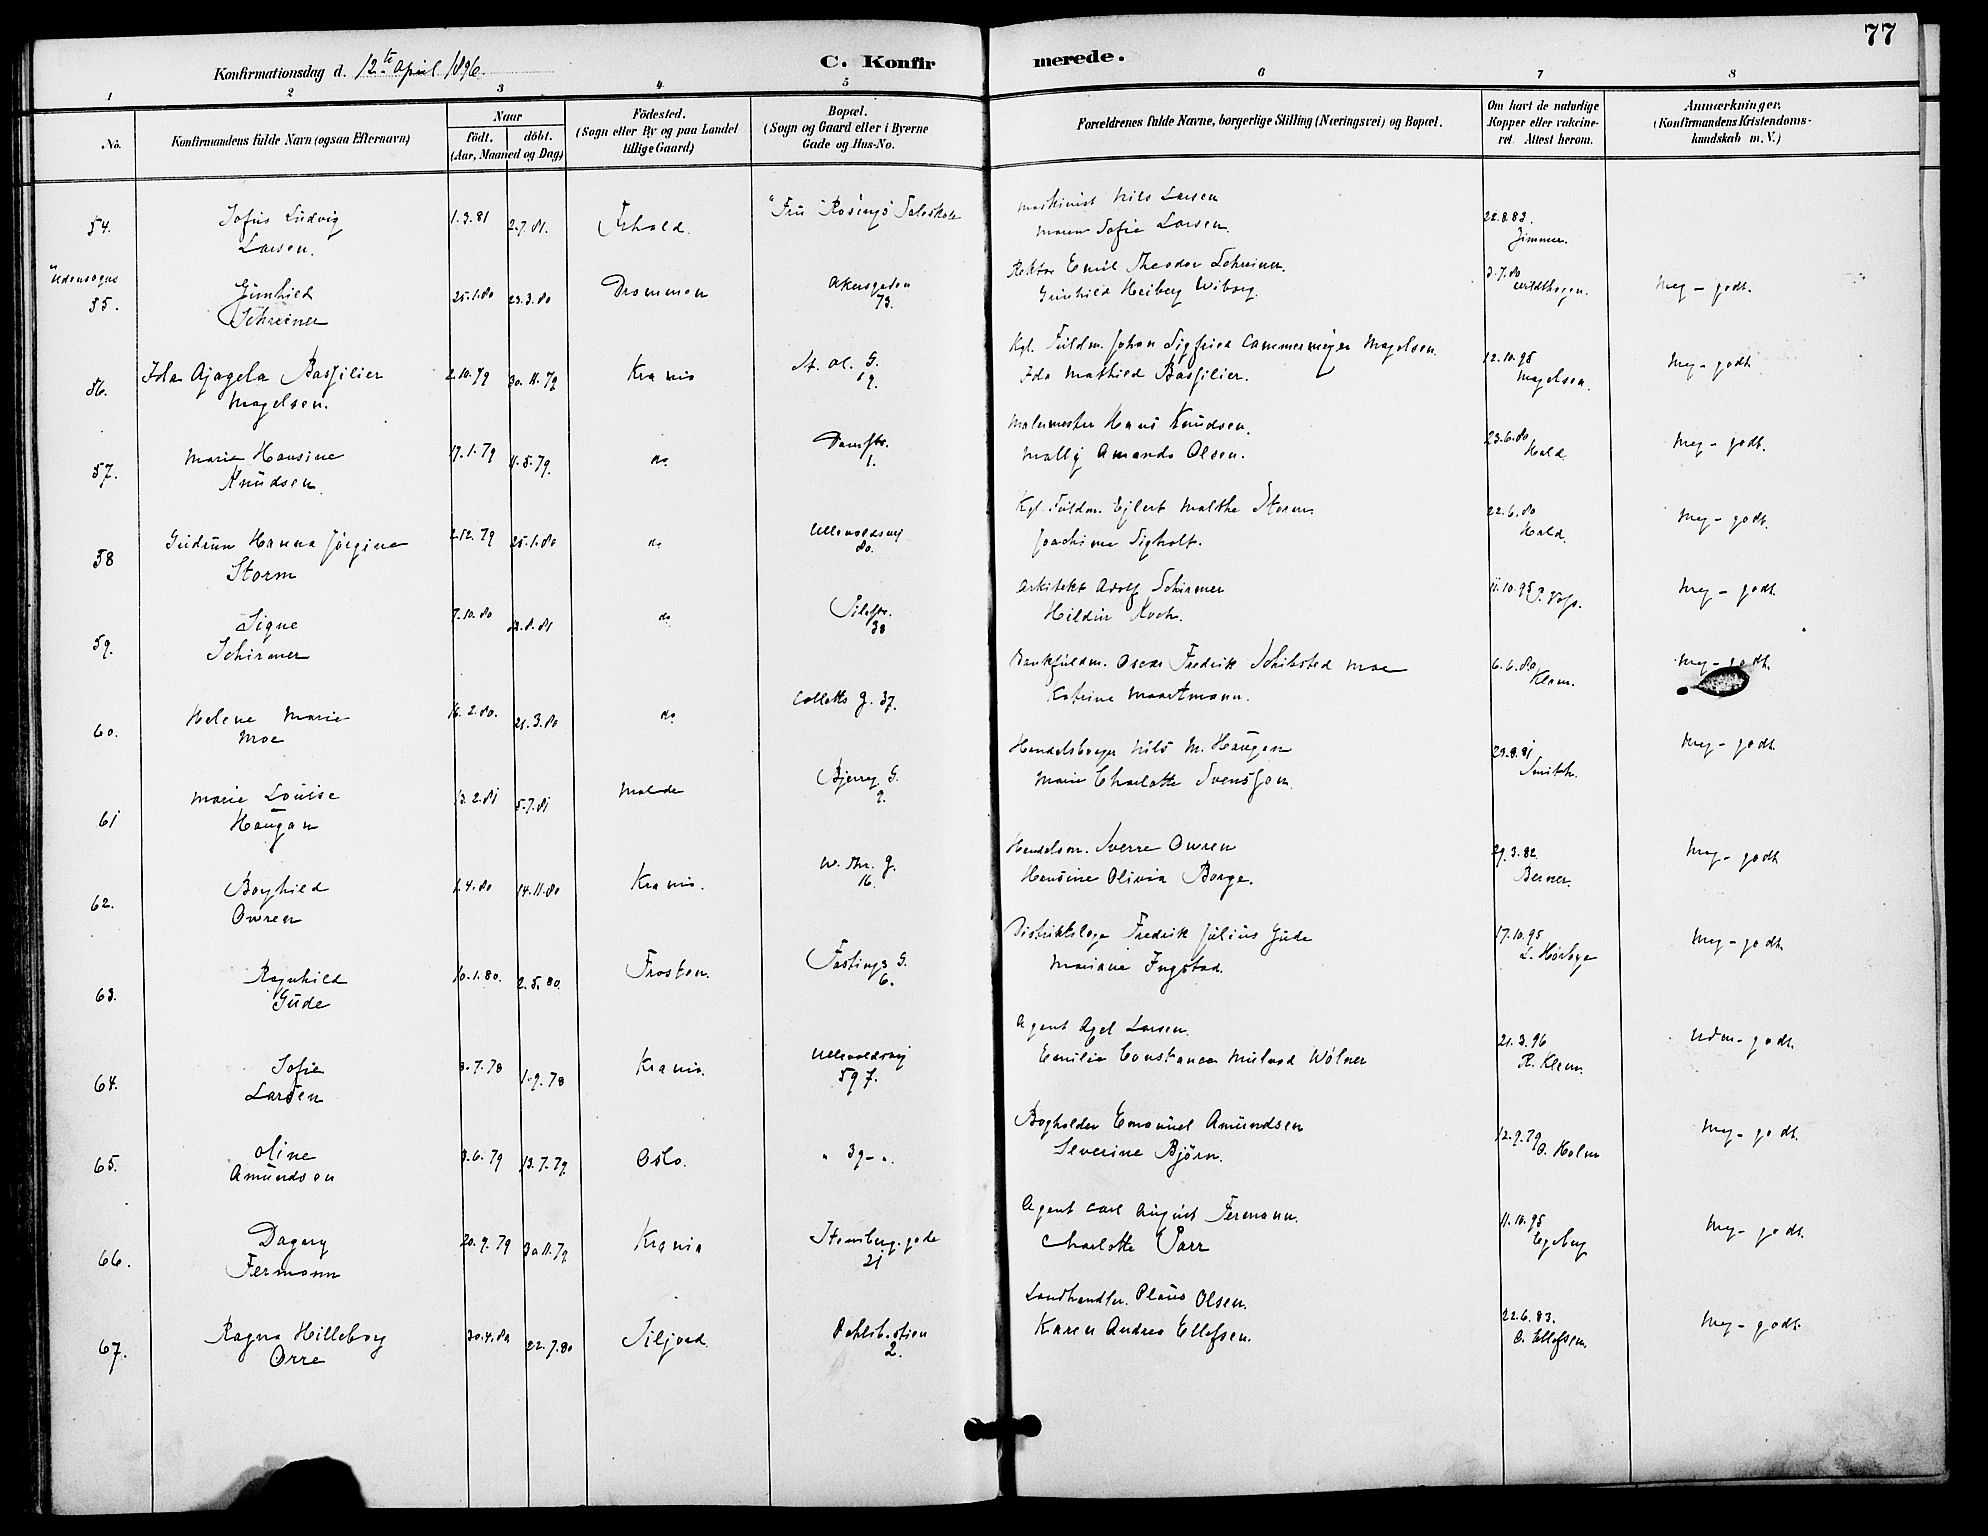 77
Konfirmationsdag d. 12te April 1896.
C. Konfirmerede.
1 2 3 4 5 6 7 8
No.
Konfirmandens fulde Navn (ogsaa Efternavn)
Naar
födt. döbt.
(Aar, Maaned og Dag)
Födested.
(Sogn eller By og paa Landet
tillige Gaard)
Bopæl.
(Sogn og Gaard eller i Byerne
Gade og Hus-No.
Forældrenes fulde Navne, borgerlige Stilling (Næringsvei) og Bopæl.
Om havt de naturlige
Kopper eller vakcine-
ret. Attest herom.
Anmærkninger.
(Konfirmandens Kristendoms-
kundskab m. V.)
54. Sofus Ludvig 1.3.81 2.7.81. Frhald. "Fru Rosings" Taleskole Maskinist Nils Larsen 22.8.83.
Larsen. Maren Sofie Larsen. Zimmer.
Udensogns
55. Gunhild 25.1.80 23.3.80 Drammen Akersgaden Rektor Emil Theodor Schreiner. 3.7.80 Meg - godt.
Schreiner 73. Gunhild Heiberg Wiborg.
56. Ida Bassilier 2.10.79 30.11.79 Krania St. Ol. G. Kgl. Fuldm. Johan Sigfried Cammermeyer Magelsen. 12.10.95 Meg - godt.
Magelsen. 19. Ida Mathild Bassilier. Magelsen.
57. Marie Hansine 17.1.79 11.5.79. do. 1. Malermester Hans Knudsen. 23.6.80 Meg - godt.
Knudsen. Mally Amanda Olsen. Hald.
58 Gudrun Hanna Jörgine 2.12.79 25.1.80 do Ullevoldsvej Kgl. Fuldm. Ejlert Malthe Storm. 22.6.80 Meg - godt.
Storm 80. Joachime Hald.
59. Signe 7.10.80 do 38 Arkitekt Adolf Schirmer 11.10.95 Meg - godt.
Schirmer Hildur Koch.
60. Helene Marie 16.2.80. 21.3.80 do Colletts g. 37. Bankfuldm. Oscar Fredrik Schibsted Moe 6.6.80 Meg - godt.
Moe Katrine Maartmann. Klem.
61 Marie Louise 13.2.81 5.7.81 Molde Bjerreg. G. Handelsborger Nils M. Haugen 29.8.81 Meg - godt.
Haugan 9. Marie Charlotte Svensson. Smith.
62. Borghild 1.4.80 14.11.80 Krania. W. Thr. g. Handelsm. Sverre Owren 29.3.82 Meg - godt
Owren 16. Hansine Olivia Borge. Berner.
63. Ragnhild 10.1.80. 2.5.80. Frosten. Fastings G. Distriktslæge Fredrik Julius Gude 17.10.95 Meg - godt.
Gude 6. Mariane Ingstad. L. Hørbye
64. Sofie 3.7.78 1.9.78 Krania. Ullevoldsvej Agent Axel Larsen. 21.3.96 Udm - godt.
Larsen 59 f. Emilie Constance Wølner R. Klem.
65. Oline 3.6.79 13.7.79. Oslo. " 39 - ". Bogholder Emanuel Amundsen 12.9.79 Meg - godt.
Amundsen Severine Bjørn. O. Holm
66. Dagny 20.9.79 30.11.79. Krania Stensberg. gade Agent Carl August Fermann. 11.10.95 Meg - godt.
Fermann 21 Charlotte Parr Egeberg
67. Ragna Hilleborg 30.4.80 22.7.80 Siljord. Dahlsb.stien Landhandler. Olaus Olsen. 22.6.83. Meg - godt.
Orre 2. Karen Andrea Ellefsen. O. Ellefsen.